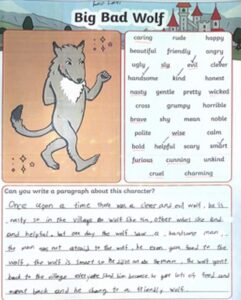 Big Bad Wolf
caring rude happy
beautiful friendly angry
ugly sly evil clever
handsome kind honest
nasty gentle pretty wicked
cross grumpy horrible
brave shy mean noble
polite wise calm
bold helpful scary smart
furious cunning unkind
cruel charming
Can you write a paragraph about this character?
Once upon a time there was a clever and evil wolf, he is
nasty so in the village the wolf she sin, other wolfs she kind
and helpful, but one day the wolf saw a handsome man,
the man not attacks to the wolf, he even give food to the
wolf, the wolf is smart so he did not the human, the wolf went
back to the village everyone him because he got lots of food and
went back and he chang to a friendly wolf.